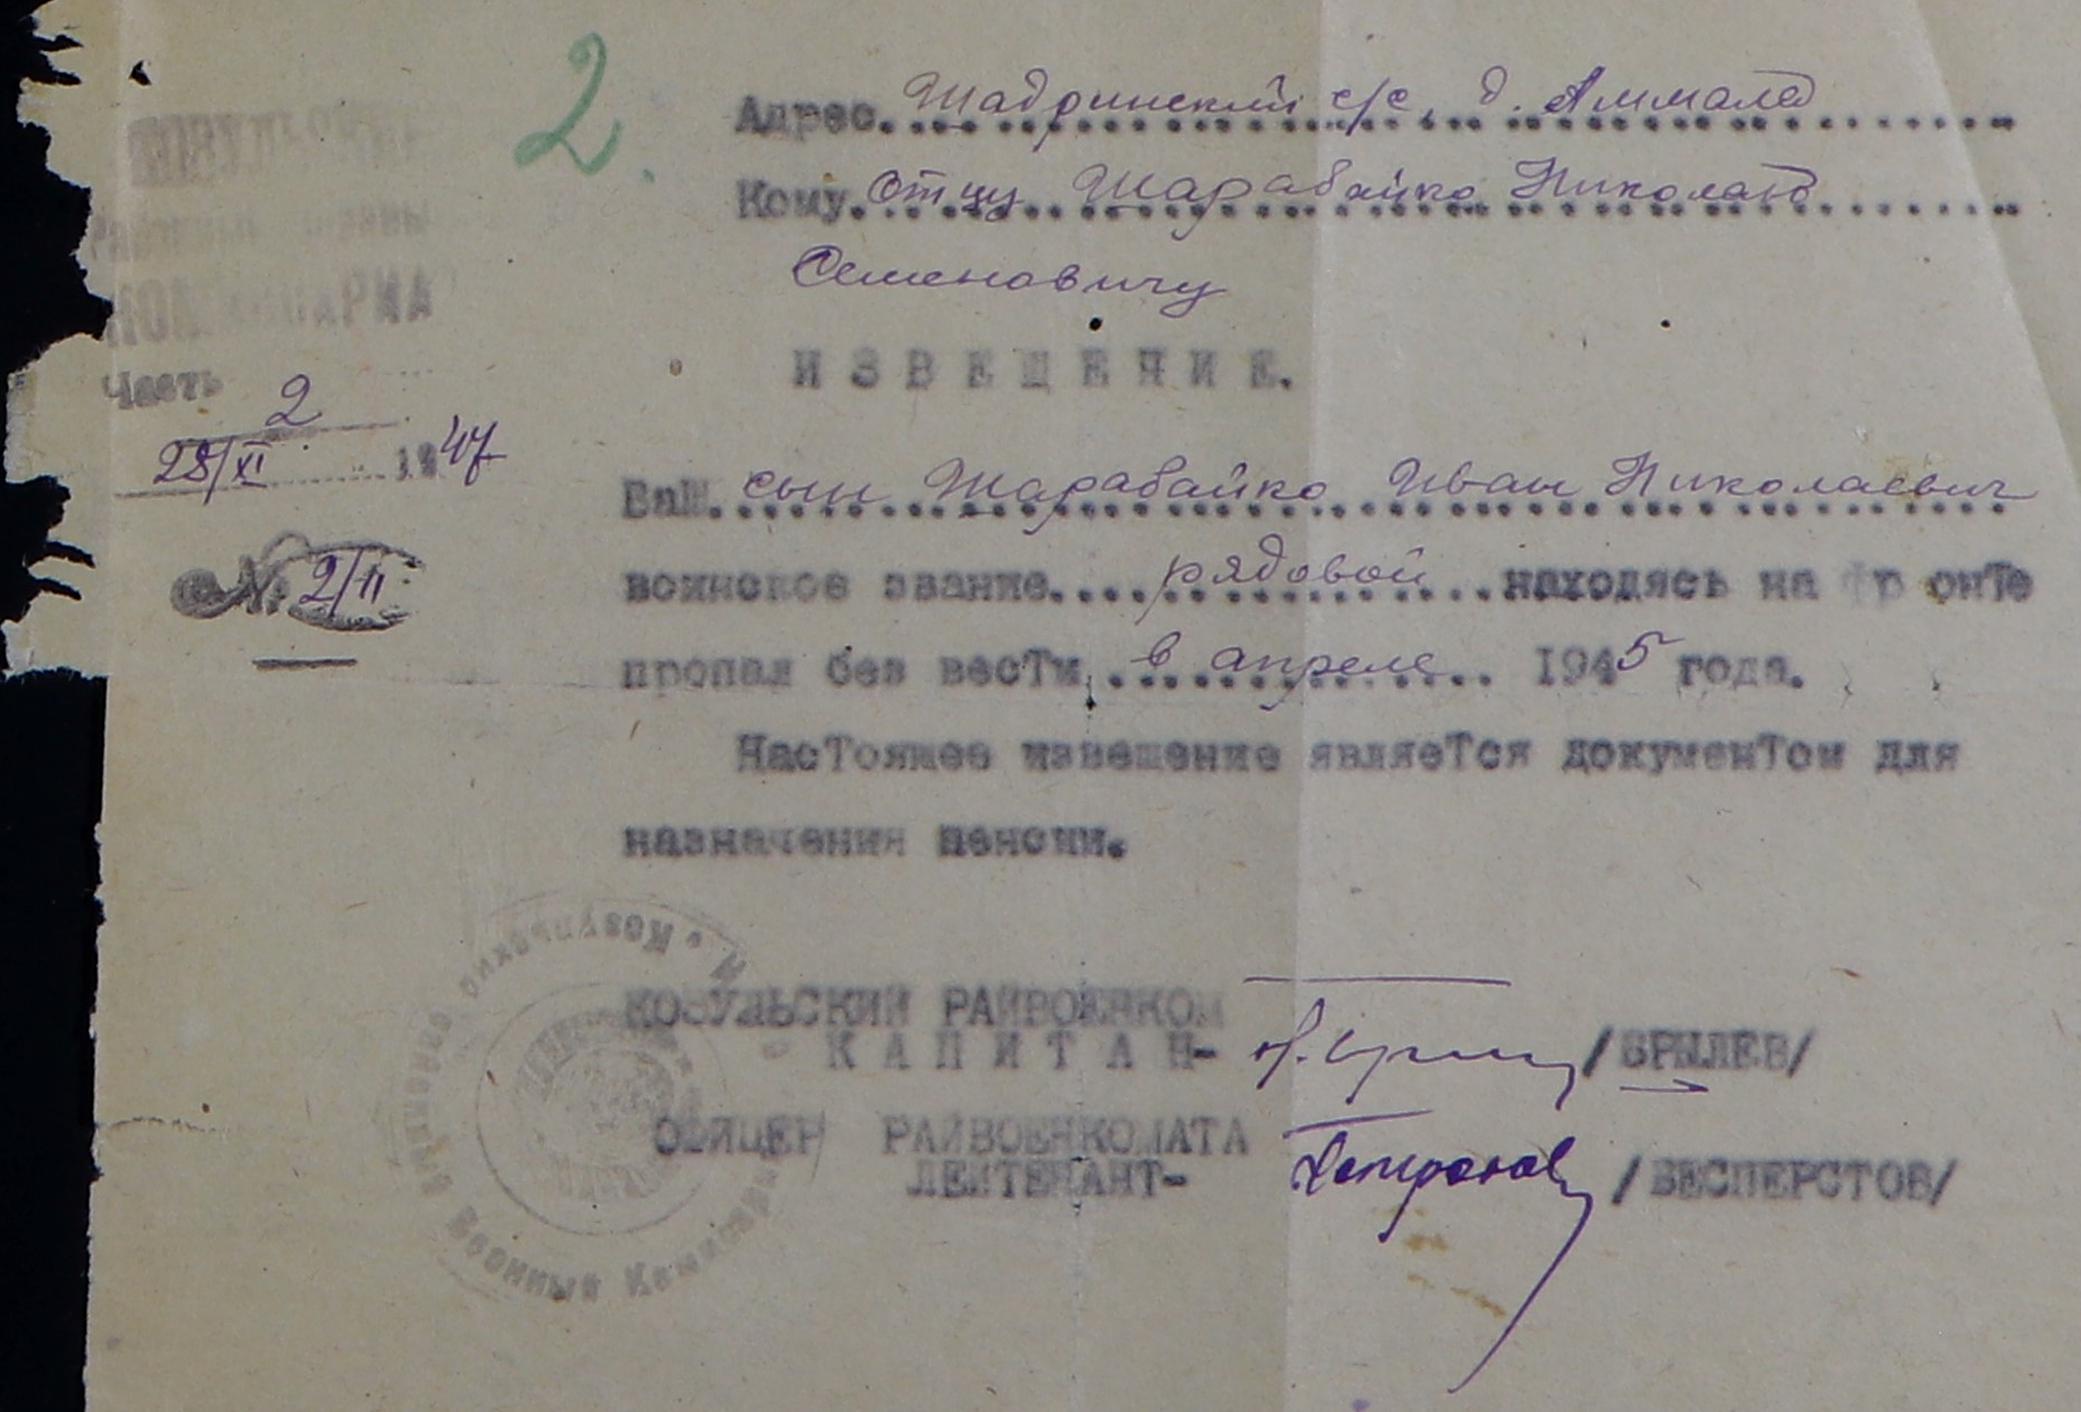 2.
КОЗУЛЬСКИЙ
РАЙОННЫЙ ВОЕННЫЙ
КОМИССАРИА
Часть 2
28/XI 1947
№ 2/11
Адрес. Шадринский с/с, д. Аммала
Кому. Отцу Шарабайко Николаю
Семеновичу
ИЗВЕЩЕНИЕ.
Ваш. сын Шарабайко Иван Николаевич
воинское звание.... рядовой ...находясь на фронте
пропал без вести. в апреле .. 1945 года.
Настоящее извещение является документом для
назначения пенсии.
КОЗУЛЬСКИЙ РАЙВОЕНКОМ
КАПИТАН- /БРЫЛЕВ/
ОФИЦЕР РАЙВОЕНКОМАТА
ЛЕЙТЕНАНТ- /БЕСПЕРСТОВ/
Козульский районный Военный Комиссариат